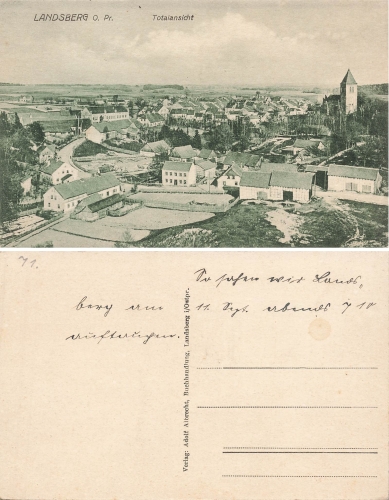 LANDSBERG O. Pr. Totalansicht
71.
So sahen wir Lands,
berg am 11. Sept. abends 7 10
auftauchen.
Verlag: Adolf Albrecht, Buchhandlung, Landsberg i/Ostpr.